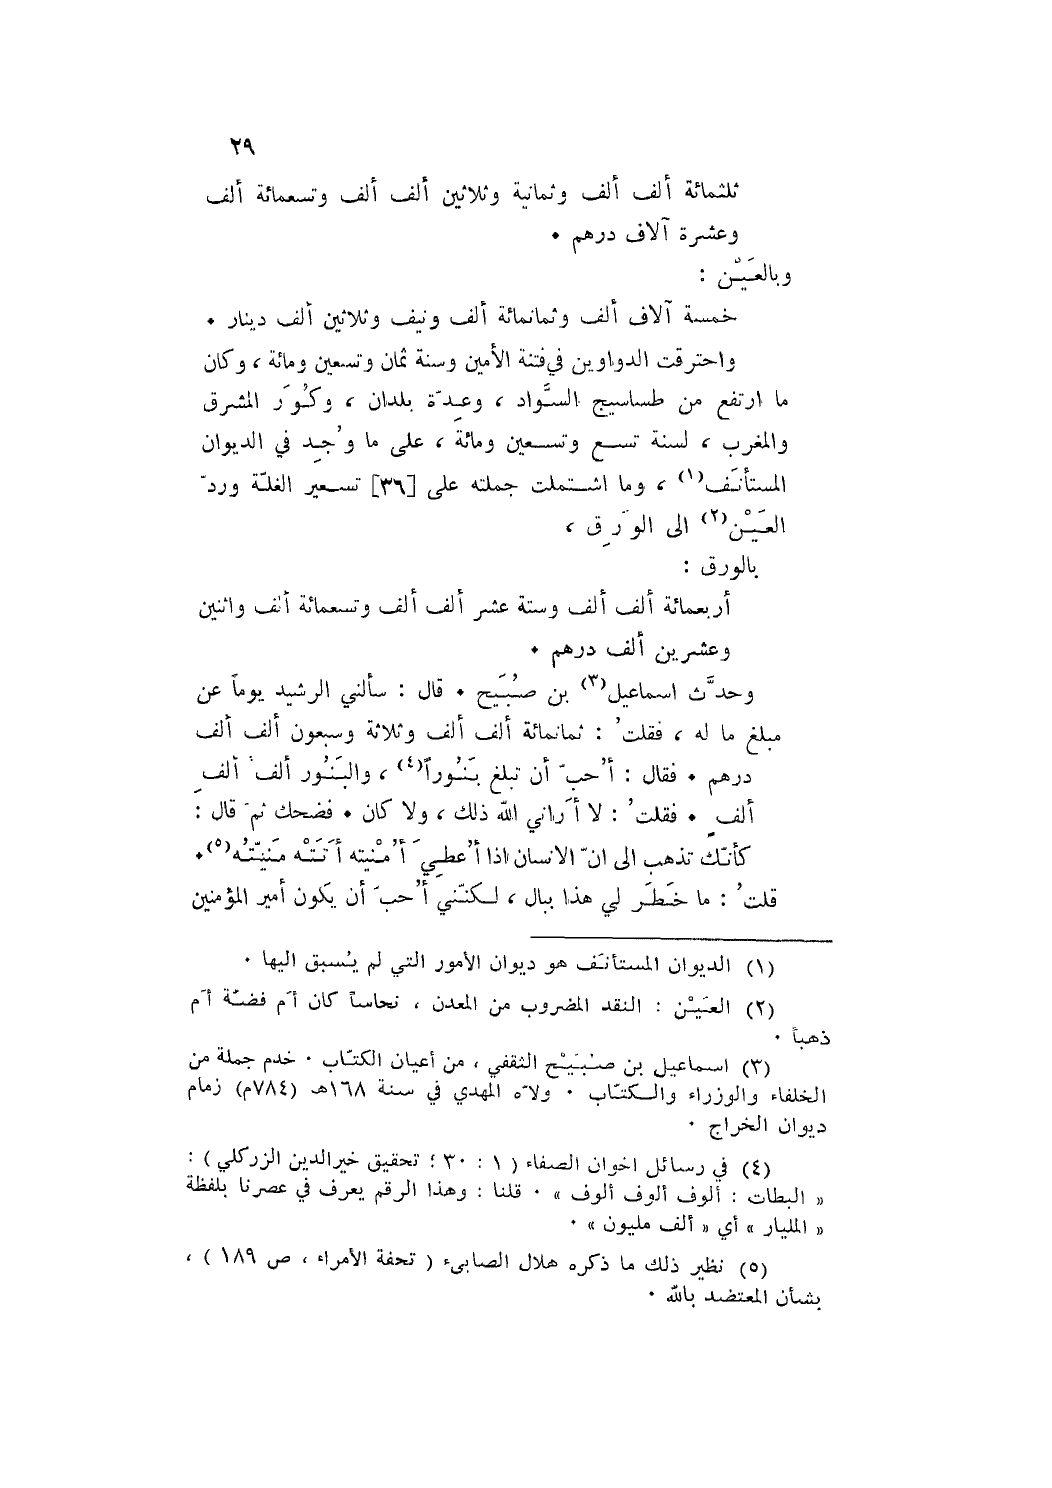 ٢٩
ثلثمائة ألف ألف وثمانية وثلاثين ألف ألف وتسعمائة ألف
وعشرة آلاف درهم •
وبالعَيْن :
خمسة آلاف ألف وثمانمائة ألف ونيف وثلاثين ألف دينار •
واحترقت الدواوين في فتنة الأمين وسنة ثمان وتسعين ومائة ، وكان
ما ارتفع من طساسيج السَّواد ، وعِدّة بلدان ، وكُوَر المشرق
والمغرب ، لسنة تسع وتسعين ومائة ، على ما وُجِد في الديوان
المستأنَف(١) ، وما اشتملت جملته على [٣٦] تسعير الغلّة وردّ
العَيْن(٢) الى الوَرِق ،
بالورق :
أربعمائة ألف ألف وستة عشر ألف ألف وتسعمائة ألف واثنين
وعشرين ألف درهم •
وحدَّث اسماعيل(٣) بن صُبَيح • قال : سألني الرشيد يوماً عن
مبلغ ما له ، فقلتُ : ثمانمائة ألف ألف وثلاثة وسبعون ألف ألف
درهم • فقال : أُحبّ أن تبلغ بَنُوراً(٤) ، والبَنُور ألفُ ألفِ
ألفٍ • فقلتُ : لا أَراني الله ذلك ، ولا كان • فضحك ثمّ قال :
كأنّك تذهب الى انّ الانسان اذا أُعطِيَ أُمْنيته أَتَتْه مَنيّتُه(٥)•
قلتُ : ما خَطَر لي هذا ببال ، لكنّني أُحبّ أن يكون أمير المؤمنين
(١) الديوان المستأنَف هو ديوان الأمور التي لم يُسبق اليها •
(٢) العَيْن : النقد المضروب من المعدن ، نحاساً كان أم فضّة أم
ذهباً •
(٣) اسماعيل بن صُبَيْح الثقفي ، من أعيان الكتّاب • خدم جملة من
الخلفاء والوزراء والكتّاب • ولاّه المهدي في سنة ١٦٨هـ (٧٨٤م) زمام
ديوان الخراج •
(٤) في رسائل اخوان الصفاء ( ١ : ٣٠ ؛ تحقيق خيرالدين الزركلي ) :
« البطات : ألوف ألوف ألوف » • قلنا : وهذا الرقم يعرف في عصرنا بلفظة
« المليار » أي « ألف مليون » •
(٥) نظير ذلك ما ذكره هلال الصابىء ( تحفة الأمراء ، ص ١٨٩ ) ،
بشأن المعتضد بالله •